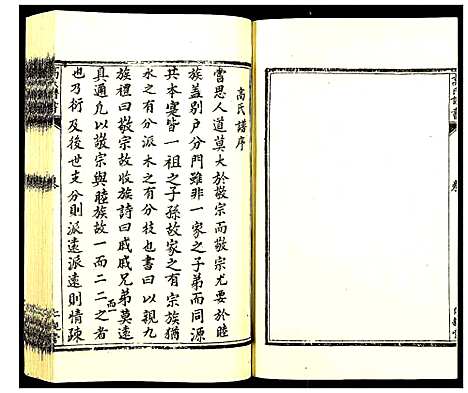 高氏譜序
嘗思人道莫大於敬宗而敬宗尤要於睦
族蓋別户分門雖非一家之子弟而同源
共本寔皆一祖之子孫故家之有宗族猶
水之有分派木之有分枝也書曰以親九
族禮曰敬宗故收族詩曰戚戚兄弟莫遠
具通九以敬宗與睦族故一而二二而之者
也乃衍及後世支分則派遠派遠則情疎
高氏譜書
卷